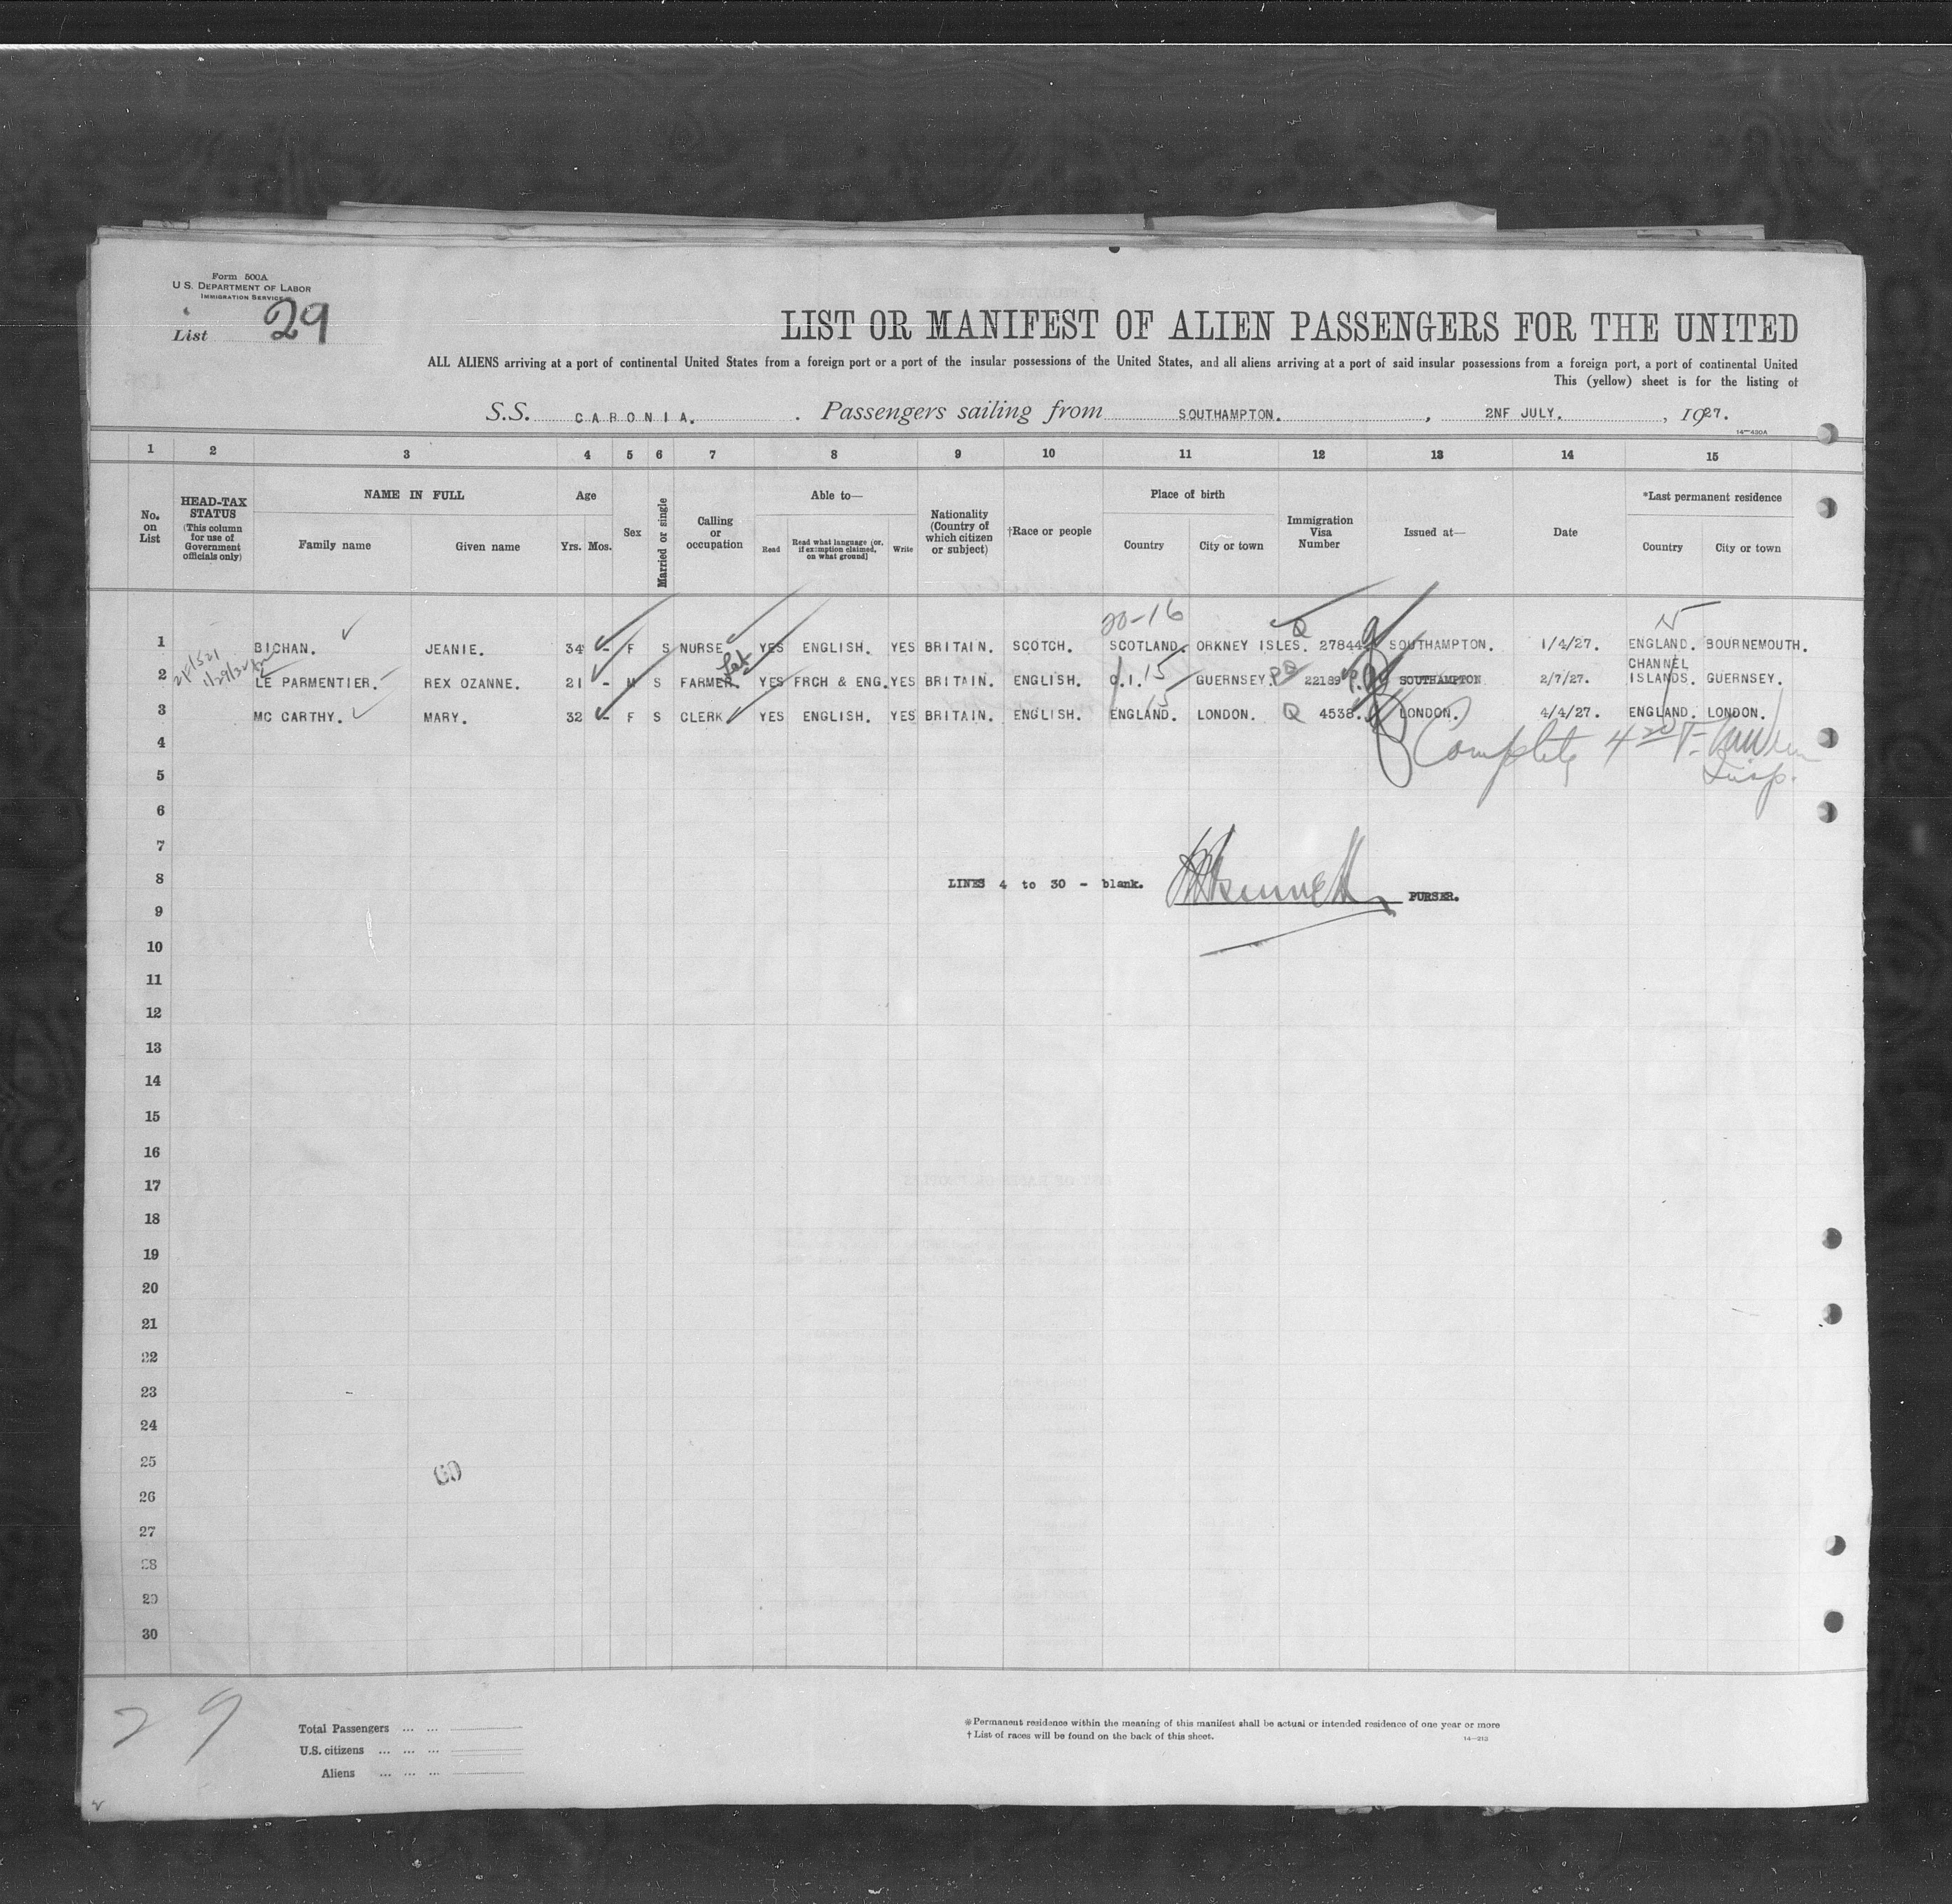 Form 500A
U.S. DEPARTMENT OF LABOR
IMMIGRATION SERVICE
List 29
LIST OR MANIFEST OF ALIEN PASSENGERS FOR THE UNITED
ALL ALIENS arriving at a port of continental United States from a foreign port or a port of the insular possessions of the United States, and all aliens arriving at a port of said insular possessions from a foreign port, a port of continental United
This (yellow) sheet is for the listing of
S.S. CARONIA. Passengers sailing from SOUTHAMPTON. , 2NF JULY. , 1927.
14—430A
1 2 3 4 5 6 7 8 9 10 11 12 13 14 15
No. on List
HEAD-TAX STATUS (This column for use of Government officials only)
NAME IN FULL
Family name Given name
Age
Yrs. Mos.
Sex
Married or single
Calling or occupation
Able to—
Read
Read what language [or, if exemption claimed, on what ground]
Write
Nationality (Country of which citizen or subject)
†Race or people
Place of birth
Country City or town
Immigration Visa Number
Issued at—
Date
*Last permanent residence
Country City or town
20-16
1 BICHAN. JEANIE. 34 - F S NURSE YES ENGLISH. YES BRITAIN. SCOTCH. SCOTLAND. ORKNEY ISLES. Q 27844 SOUTHAMPTON. 1/4/27. ENGLAND. BOURNEMOUTH.
2 LE PARMENTIER. REX OZANNE. 21 - M S FARMER. YES FRCH & ENG. YES BRITAIN. ENGLISH. C.I. 15 GUERNSEY. 22189 SOUTHAMPTON 2/7/27. CHANNEL ISLANDS. GUERNSEY.
3 MC CARTHY. MARY. 32 - F S CLERK YES ENGLISH. YES BRITAIN. ENGLISH. ENGLAND. 15 LONDON. Q 4538. LONDON. 4/4/27. ENGLAND. LONDON.
4
Complete
Insp.
5
6
7
8 LINES 4 to 30 - blank. PURSER.
9
10
11
12
13
14
15
16
17
18
19
20
21
22
23
24
25
26
27
28
29
30
29
Total Passengers ... ...
U.S. citizens ... ... ...
Aliens ... ... ...
*Permanent residence within the meaning of this manifest shall be actual or intended residence of one year or more
† List of races will be found on the back of this sheet.
14—213